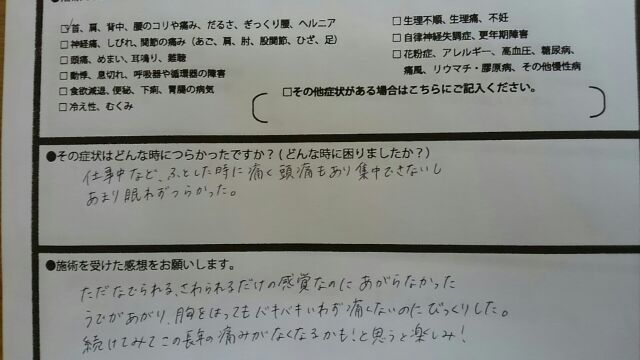 ☑首、肩、背中、腰のコリや痛み、だるさ、ぎっくり腰、ヘルニア
□神経痛、しびれ、関節の痛み（あご、肩、肘、股関節、ひざ、足）
□頭痛、めまい、耳鳴り、難聴
□動悸、息切れ、呼吸器や循環器の障害
□食欲減退、便秘、下痢、胃腸の病気
□冷え性、むくみ
□生理不順、生理痛、不妊
□自律神経失調症、更年期障害
□花粉症、アレルギー、高血圧、糖尿病、
痛風、リウマチ・膠原病、その他慢性病
□その他症状がある場合はこちらにご記入ください。
●その症状はどんな時につらかったですか？(どんな時に困りましたか？)
仕事中など、ふとした時に痛く頭痛もあり集中できないし
あまり眠れずつらかった。
●施術を受けた感想をお願いします。
ただなでられる、さわられるだけの感覚なのにあがらなかった
うでがあがり、胸をはってもバキバキいわず痛くないのにびっくりした。
続けてみてこの長年の痛みがなくなるかも！と思うと楽しみ！